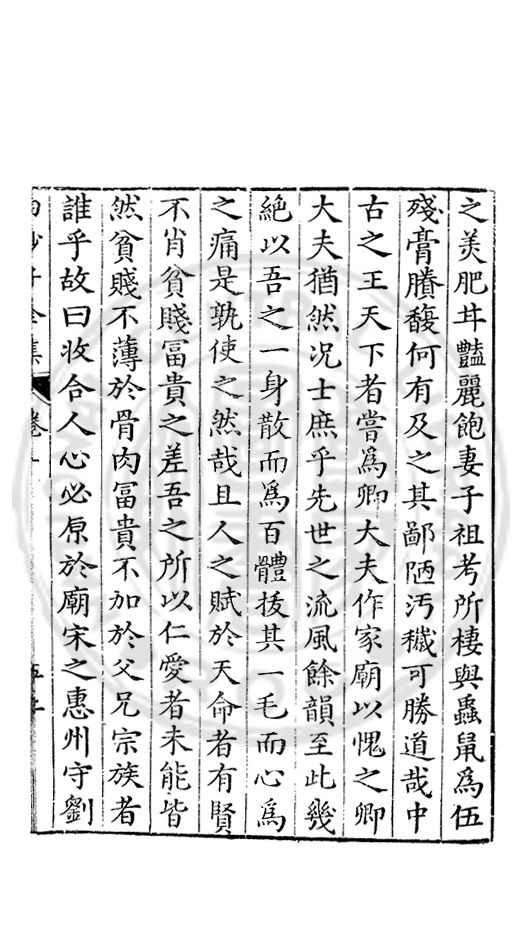 之羙肥甘豔麗飽妻子祖考所棲與蟲鼠爲伍
殘膏賸馥何有及之其鄙陋汚穢可勝道哉中
古之王天下者嘗爲卿大夫作家廟以愧之卿
大夫猶然况士庶乎先世之流風餘韻至此幾
絕以吾之一身散而爲百體拔其一毛而心爲
之痛是孰使之然哉且人之賦於天命者有賢
不肖貧賤冨貴之差吾之所以仁愛者未能皆
然貧賤不薄於骨肉冨貴不加於父兄宗族者
誰乎故曰收合人心必原於廟宋之惠州守劉
子全集 卷